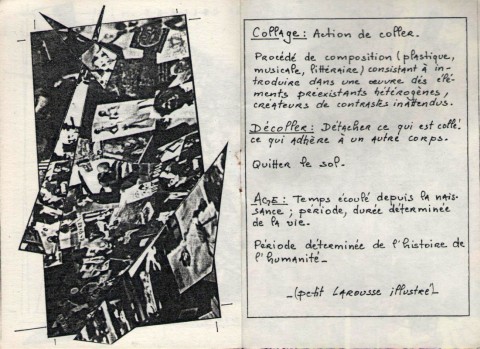 Collage : Action de coller.
Procédé de composition (plastique,
musicale, littéraire) consistant à in-
troduire dans une œuvre des élé-
ments préexistants hétérogènes,
créateurs de contrastes inattendus.
Décoller : Détacher ce qui est collé,
ce qui adhère à un autre corps.
Quitter le sol.
AGE : Temps écoulé depuis la nais-
sance ; période, durée déterminée
de la vie.
Période déterminée de l'histoire de
l'humanité_
_(petit LAROUSSE illustré)_